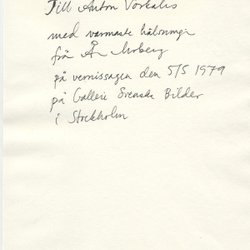 Till Anton Vorkalis
med varmaste hälsningar
från Åke Moberg
på vernissagen den 5/5 1979
på Gallerie Svenska Bilder
i Stockholm